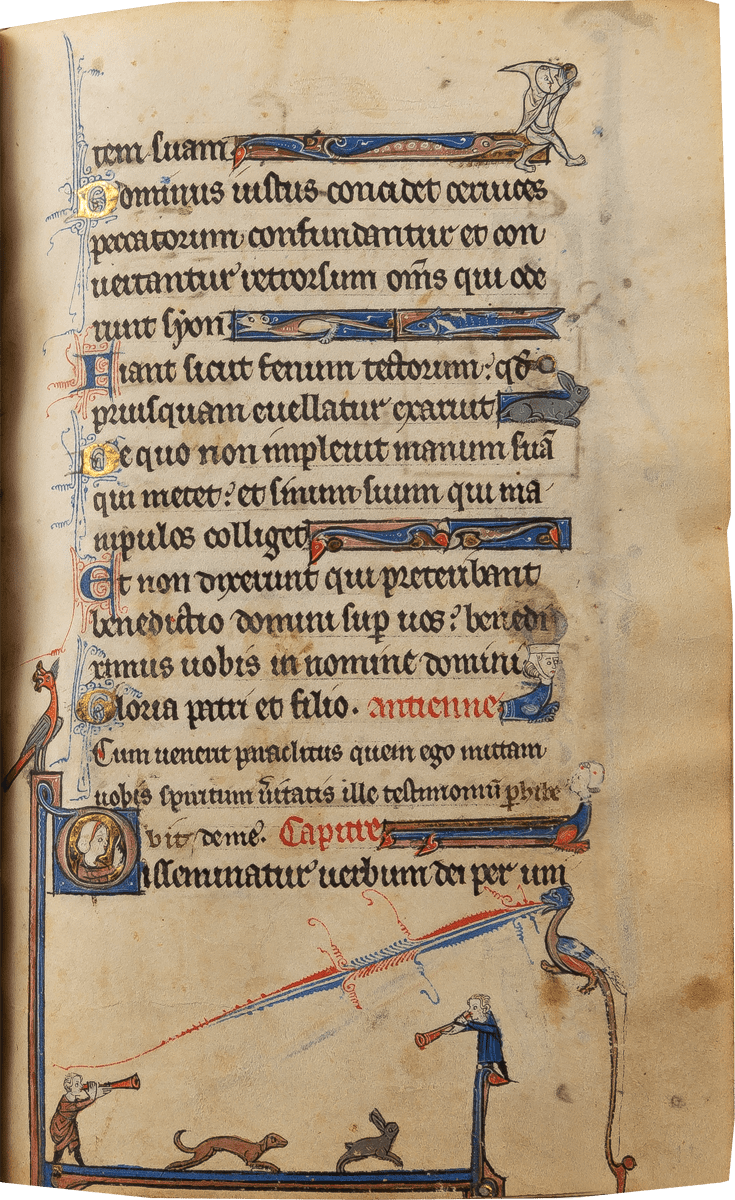 tem suam
Dominus iustus concidet ceruices
peccatorum confundantur et con
uertantur retrorsum om̄s qui ode
runt syon
Fiant sicut fenum tectorum: qd̄
priusquam euellatur exaruit
De quo non impleuit manum suā
qui metet: et sinum suum qui ma
nipulos colliget
Et non dixerunt qui preteribant
benedictio domini sup̄ uos: benedi
ximus uobis in nomine domini
Gloria patri et filio. antienne
Cum uenerit paraclitus quem ego mittam
uobis spiritum ūitatis ille testimoniū phibe
bit de me. Capitre
Disseminatur uerbum dei per uni